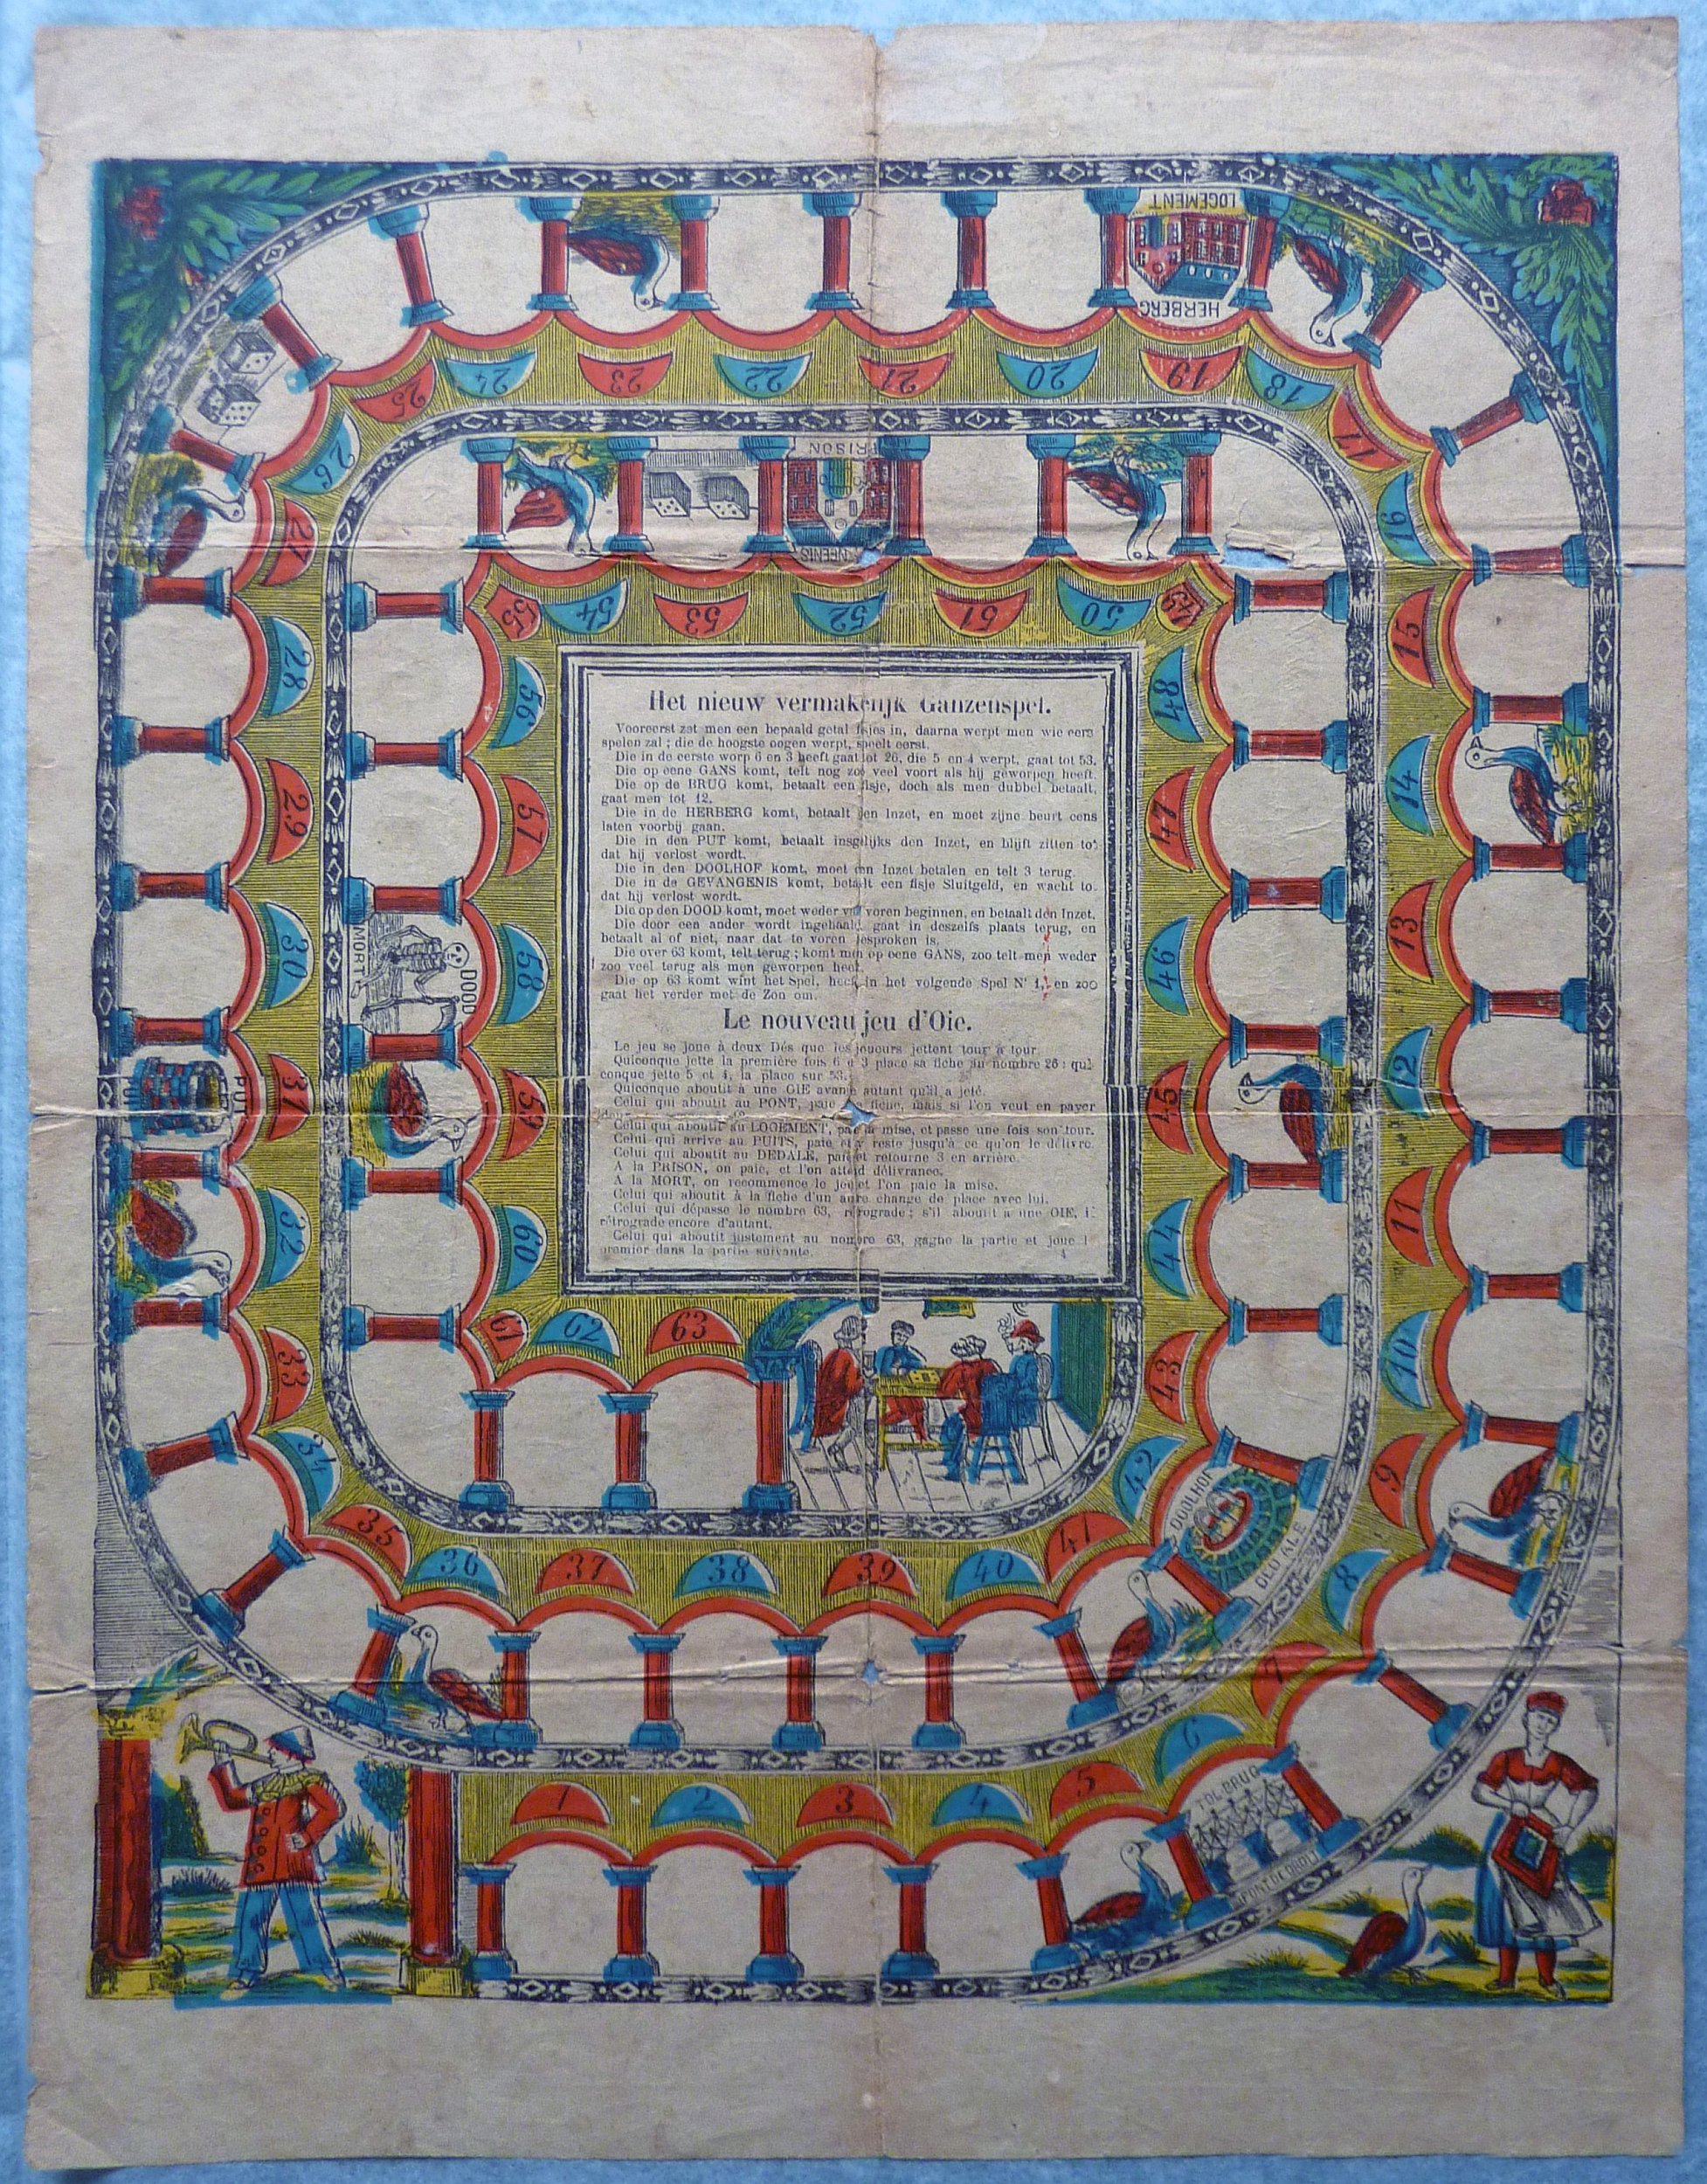 Het nieuw vermakelijk Ganzenspel.
Vooreerst zet men een bepaald getal fisjes in, daarna werpt men wie eers
spelen zal ; die de hoogste oogen werpt, speelt eerst.
Die in de eerste worp 6 en 3 heeft gaat tot 26, die 5 en 4 werpt, gaat tot 53.
Die op eene GANS komt, telt nog zoo veel voort als hij geworpen heeft.
Die op de BRUG komt, betaalt een fisje, doch als men dubbel betaalt,
gaat men tot 12.
Die in de HERBERG komt, betaalt den Inzet, en moet zijne beurt eens
laten voorbij gaan.
Die in den PUT komt, betaalt insgelijks den Inzet, en blijft zitten tot
dat hij verlost wordt.
Die in den DOOLHOF komt, moet den Inzet betalen en telt 3 terug.
Die in de GEVANGENIS komt, betaalt een fisje Sluitgeld, en wacht to
dat hij verlost wordt.
Die op den DOOD komt, moet weder van voren beginnen, en betaalt den Inzet.
Die door een ander wordt ingehaald, gaat in deszelfs plaats terug, en
betaalt al of niet, naar dat te voren besproken is.
Die over 63 komt, telt terug ; komt men op eene GANS, zoo telt men weder
zoo veel terug als men geworpen heeft.
Die op 63 komt wint het Spel, heeft in het volgende Spel N° 1, en zoo
gaat het verder met de Zon om.
Le nouveau jeu d'Oie.
Le jeu se joue à deux Dés que les joueurs jettent tour à tour.
Quiconque jette la première fois 6 e 3 place sa fiche au nombre 26 : qui
conque jette 5 et 4, la place sur 53.
Quiconque aboutit à une OIE avance autant qu'il a jeté.
Celui qui aboutit au PONT, paie la fiche, mais si l'on veut en payer
Celui qui aboutit au LOGEMENT, paie la mise, et passe une fois son tour.
Celui qui arrive au PUITS, paie et y reste jusqu'à ce qu'on le délivre.
Celui qui aboutit au DEDALE, paie et retourne 3 en arrière.
A la PRISON, on paie, et l'on attend délivrance.
A la MORT, on recommence le jeu et l'on paie la mise.
Celui qui aboutit à la fiche d'un autre change de place avec lui.
Celui qui dépasse le nombre 63, rétrograde ; s'il aboutit a une OIE, i
rétrograde encore d'autant.
Celui qui aboutit justement au nombre 63, gagne la partie et joue l
premier dans la partie suivante.
1
2
3
4
5
6
TOL-BRUG
PONT DE
7
8
9
10
11
12
13
14
15
16
17
18
19
LOGEMENT
HERBERG
20
21
22
23
24
25
26
27
28
29
30
31
PUT
32
33
34
35
36
37
38
39
40
41
42
DOOLHOF
DEDALE
43
44
45
46
47
48
49
50
51
52
RISON
NEENIS
53
54
55
56
57
58
MORT
DOOD
59
60
61
62
63